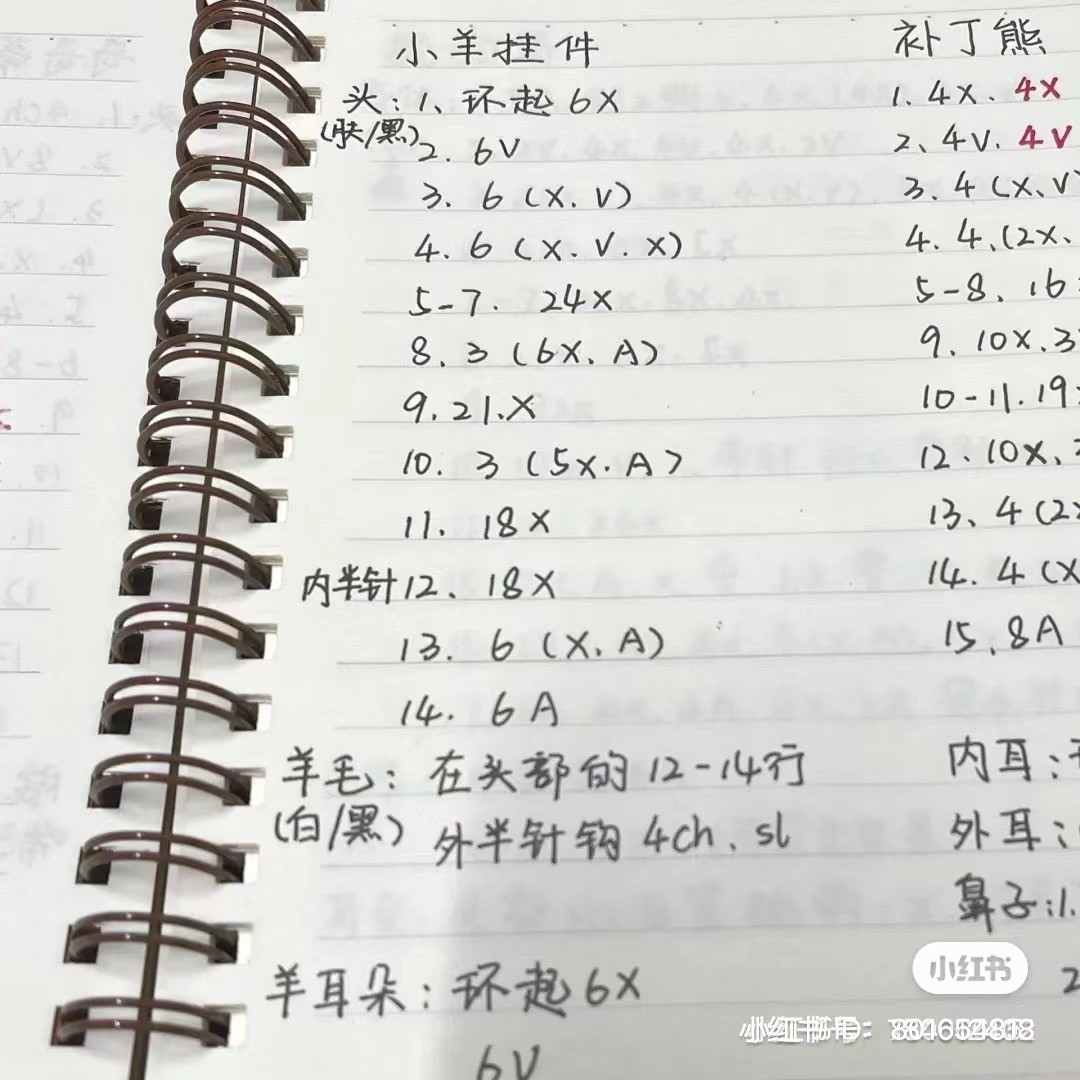 小羊挂件
头：1、环起6X
(肤/黑)
2. 6V
3. 6 (X. V)
4. 6 (X. V. X)
5-7. 24X
8. 3 (6X. A)
9. 21.X
10. 3 (5X. A)
11. 18X
内半针 12、18X
13. 6 (X. A)
14. 6A
羊毛：在头部的12-14行
(白/黑) 外半针钩4ch、sl
羊耳朵：环起6X
6V
补丁熊
1. 4X. 4X
2、4V. 4V
3. 4 (X. V)
4. 4.(2X.
5-8、16
9. 10X.3
10-11. 19
12. 10X.
13、4 (2
14. 4 (X
15. 8A
内耳：
外耳：
鼻子：1.
2
小红书
小红书